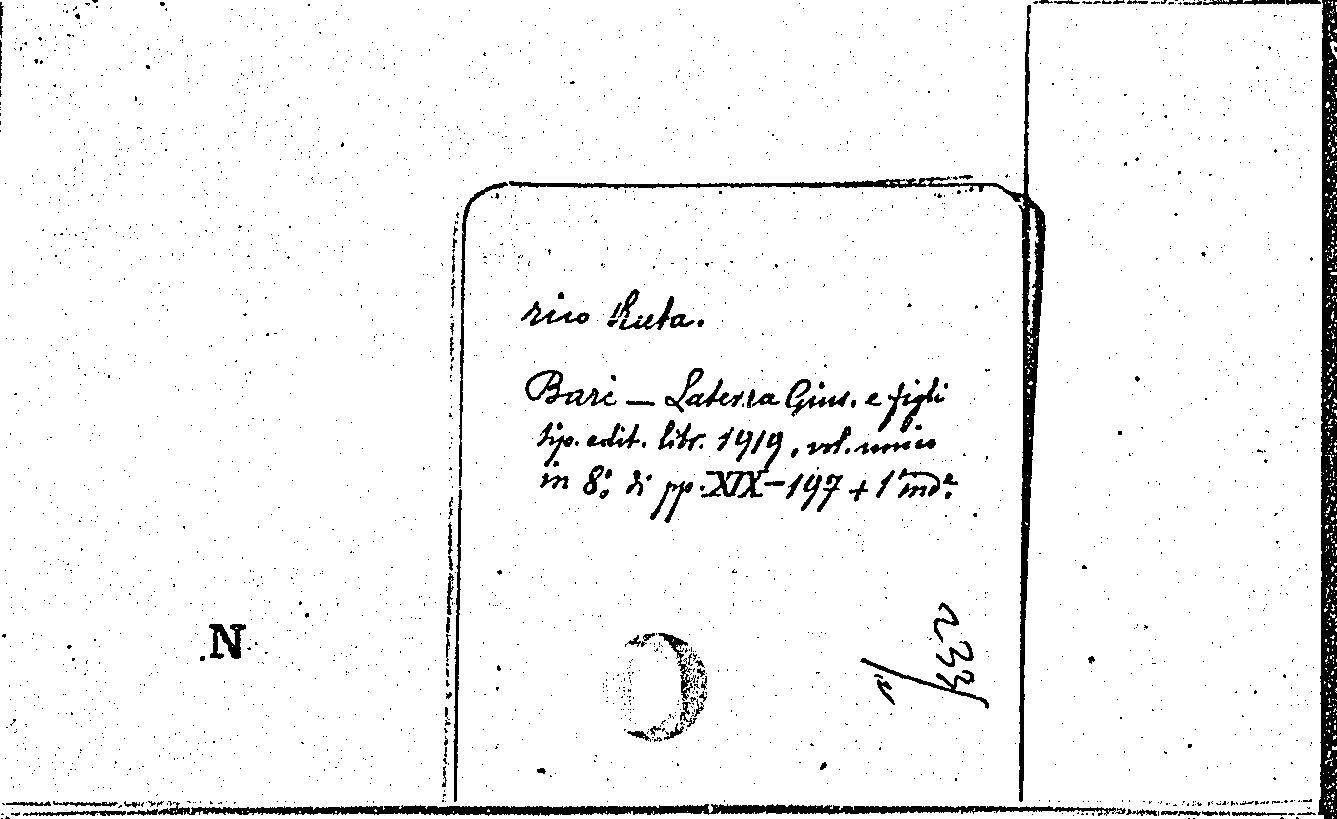 rico Ruta.
Bari — Laterza Gius. e figli
tip. edit. libr. 1919, vol. unico
in 8.° di pp. XIX-197 + 1
N
233